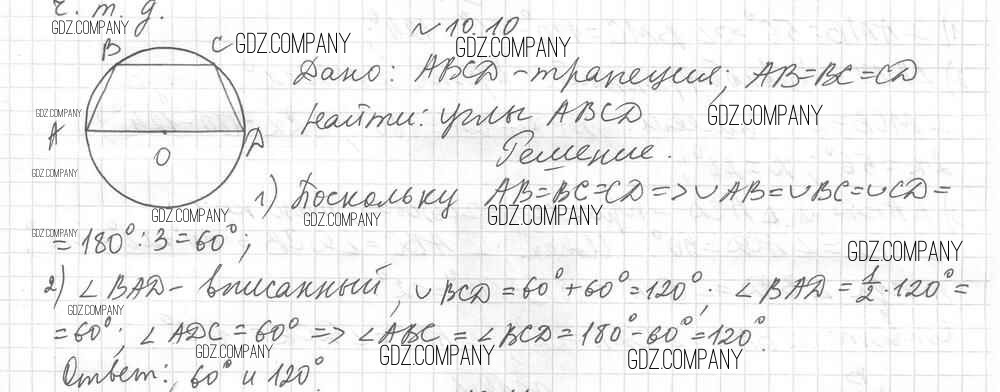 ч. т. д.
GDZ.COMPANY
№ 10.10
B C
GDZ.COMPANY
GDZ.COMPANY
Дано: ABCD - трапеция; AB=BC=CD
GDZ.COMPANY
A O D
Найти: углы ABCD
GDZ.COMPANY
Решение.
GDZ.COMPANY
1) Поскольку AB=BC=CD => ∪AB=∪BC=∪CD=
GDZ.COMPANY
GDZ.COMPANY
GDZ.COMPANY
GDZ.COMPANY
= 180° : 3 = 60°;
GDZ.COMPANY
2) ∠BAD - вписанный, ∪BCD = 60° + 60° = 120°; ∠BAD = 1/2 · 120° =
GDZ.COMPANY
= 60°; ∠ADC = 60° => ∠ABC = ∠BCD = 180° - 60° = 120°.
GDZ.COMPANY
GDZ.COMPANY
GDZ.COMPANY
Ответ: 60° и 120°